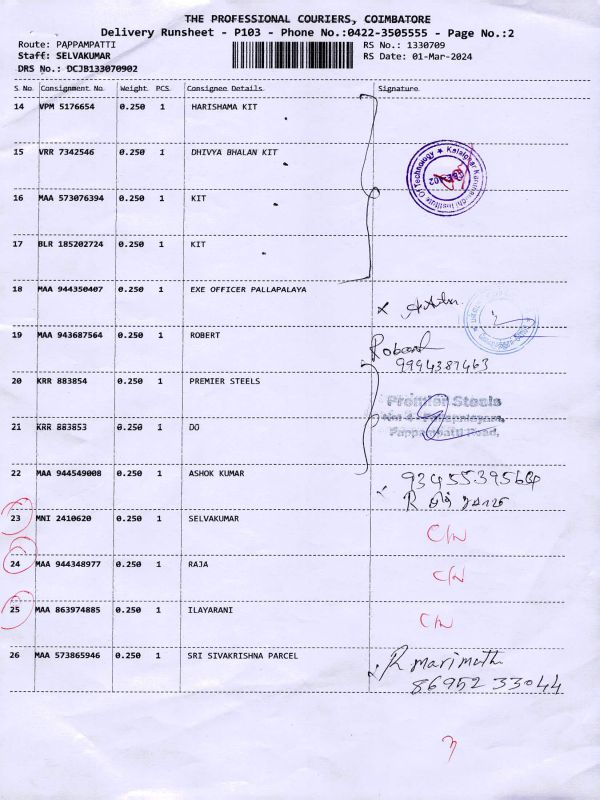 THE PROFESSIONAL COURIERS, COIMBATORE
Delivery Runsheet - P103 - Phone No.:0422-3505555 - Page No.:2
Route: PAPPAMPATTI RS No.: 1330709
Staff: SELVAKUMAR RS Date: 01-Mar-2024
DRS No.: DCJB133070902
S No Consignment No Weight PCS Consignee Details Signature
14 VPM 5176654 0.250 1 HARISHAMA KIT
15 VRR 7342546 0.250 1 DHIVYA BHALAN KIT
16 MAA 573076394 0.250 1 KIT
17 BLR 185202724 0.250 1 KIT
18 MAA 944350407 0.250 1 EXE OFFICER PALLAPALAYA
19 MAA 943687564 0.250 1 ROBERT
Robert
9994387463
20 KRR 883854 0.250 1 PREMIER STEELS
Premier Steels
21 KRR 883853 0.250 1 DO
Pappampatti Road,
22 MAA 944549008 0.250 1 ASHOK KUMAR
23 MNI 2410620 0.250 1 SELVAKUMAR C/N
24 MAA 944348977 0.250 1 RAJA C/N
25 MAA 863974885 0.250 1 ILAYARANI C/N
26 MAA 573865946 0.250 1 SRI SIVAKRISHNA PARCEL R marimuth
86952 33044